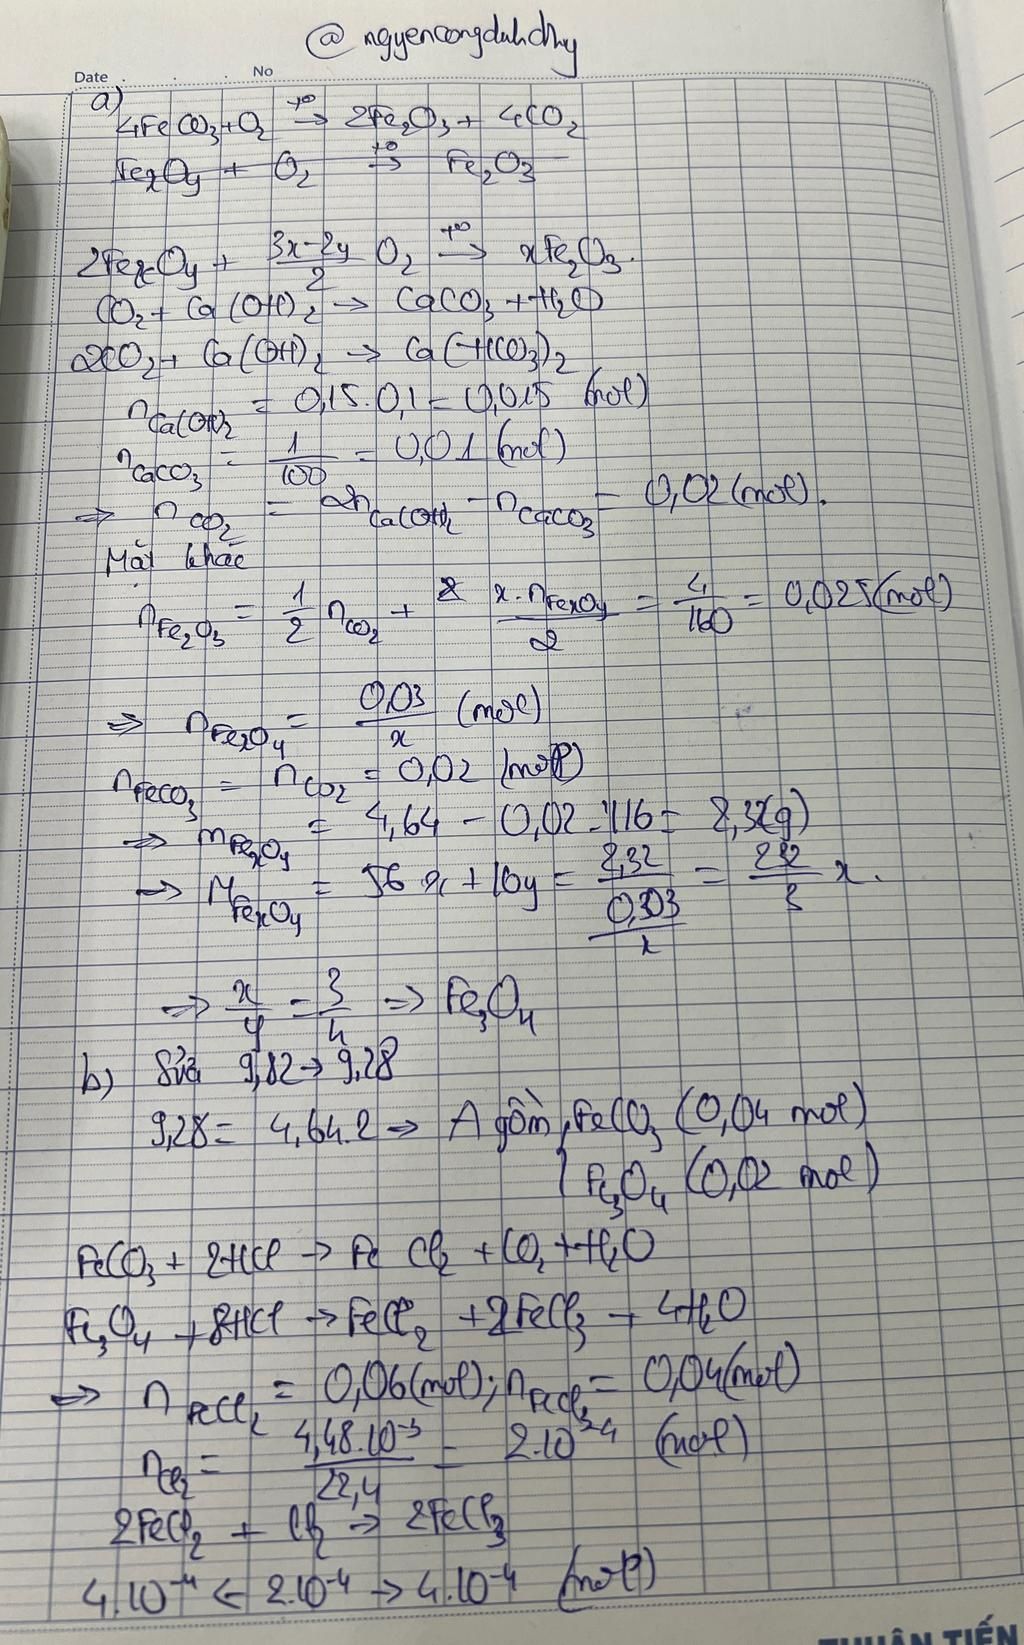 @ngyencongduhdhy
Date . . . No
a)
4FeCO3+O2 t°→ 2Fe2O3 + 4CO2
FexOy + O2 t°→ Fe2O3
2FexOy + (3x-2y)/2 O2 t°→ xFe2O3.
CO2 + Ca(OH)2 → CaCO3 + H2O
2CO2 + Ca(OH)2 → Ca(HCO3)2
nCa(OH)2 = 0,15.0,1 = 0,015 (mol)
nCaCO3 = 1/100 = 0,01 (mol)
⇒ nCO2 = 2nCa(OH)2 - nCaCO3 = 0,02 (mol).
Mặt khác
nFe2O3 = 1/2 nCO2 + x.nFexOy/2 = 4/160 = 0,025 (mol)
⇒ nFexOy = 0,03/x (mol)
nFeCO3 = nCO2 = 0,02 (mol)
⇒ mFexOy = 4,64 - 0,02.116 = 2,32(g)
⇒ MFexOy = 56x + 16y = 2,32/(0,03/x) = 232/3 x.
⇒ x/y = 3/4 ⇒ Fe3O4
b) Sửa 9,82 → 9,28
9,28 = 4,64.2 ⇒ A gồm { FeCO3 (0,04 mol)
Fe3O4 (0,02 mol)
FeCO3 + 2HCl → FeCl2 + CO2 + H2O
Fe3O4 + 8HCl → FeCl2 + 2FeCl3 + 4H2O
⇒ nFeCl2 = 0,06 (mol); nFeCl3 = 0,04 (mol)
nCl2 = 4,48.10^-3/22,4 = 2.10^-4 (mol)
2FeCl2 + Cl2 → 2FeCl3
4.10^-4 ← 2.10^-4 → 4.10^-4 (mol)
THUẬN TIẾN